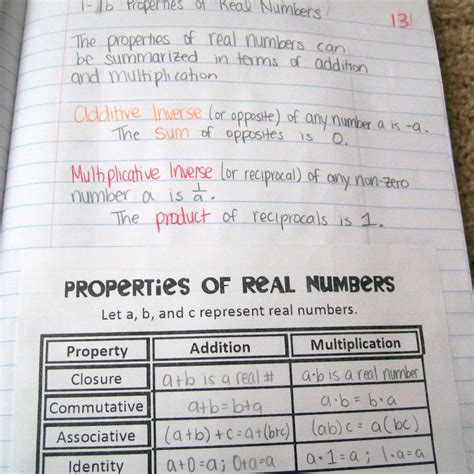 1- 1b Properties of Real Numbers
13
The properties of real numbers can
be summarized in terms of addition
and multiplication
Additive Inverse (or opposite) of any number a is -a.
The sum of opposites is 0.
Multiplicative Inverse (or reciprocal) of any non-zero
number a is 1/a.
The product of reciprocals is 1.
PROPERTIES OF REAL NUMBERS
Let a, b, and c represent real numbers.
Property Addition Multiplication
Closure a+b is a real # a·b is a real number
Commutative a+b=b+a a·b = b·a
Associative (a+b)+c=a+(b+c) (ab)c = a(bc)
Identity a+0=a; 0+a=a a·1=a; 1·a=a